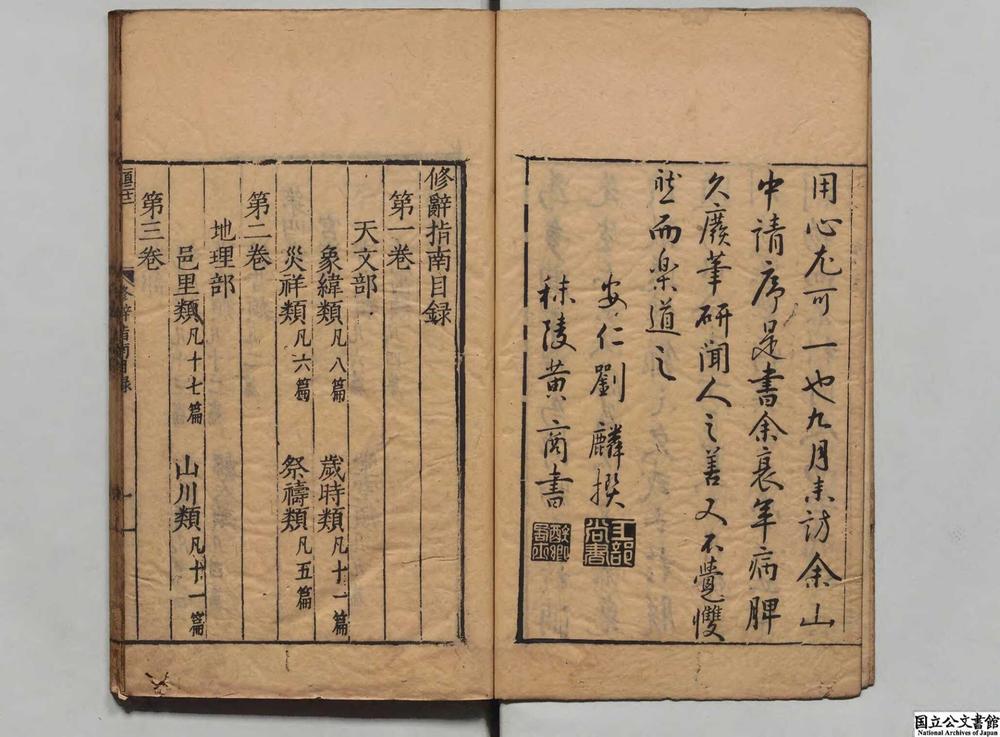 用心尤可一也九月末訪余山
中請序是書余衰年病脾
久廢筆研聞人之善又不覺雙
然而樂道之
安仁劉麟撰
工部尚書
秣陵黄商書
修辭指南目録
第一卷
天文部
象緯類凡八篇 歲時類凡十一篇
災祥類凡六篇 祭禱類凡五篇
第二卷
地理部
邑里類凡十七篇 山川類凡十一篇
第三卷
修辭指南目録
一
国立公文書館
National Archives of Japan